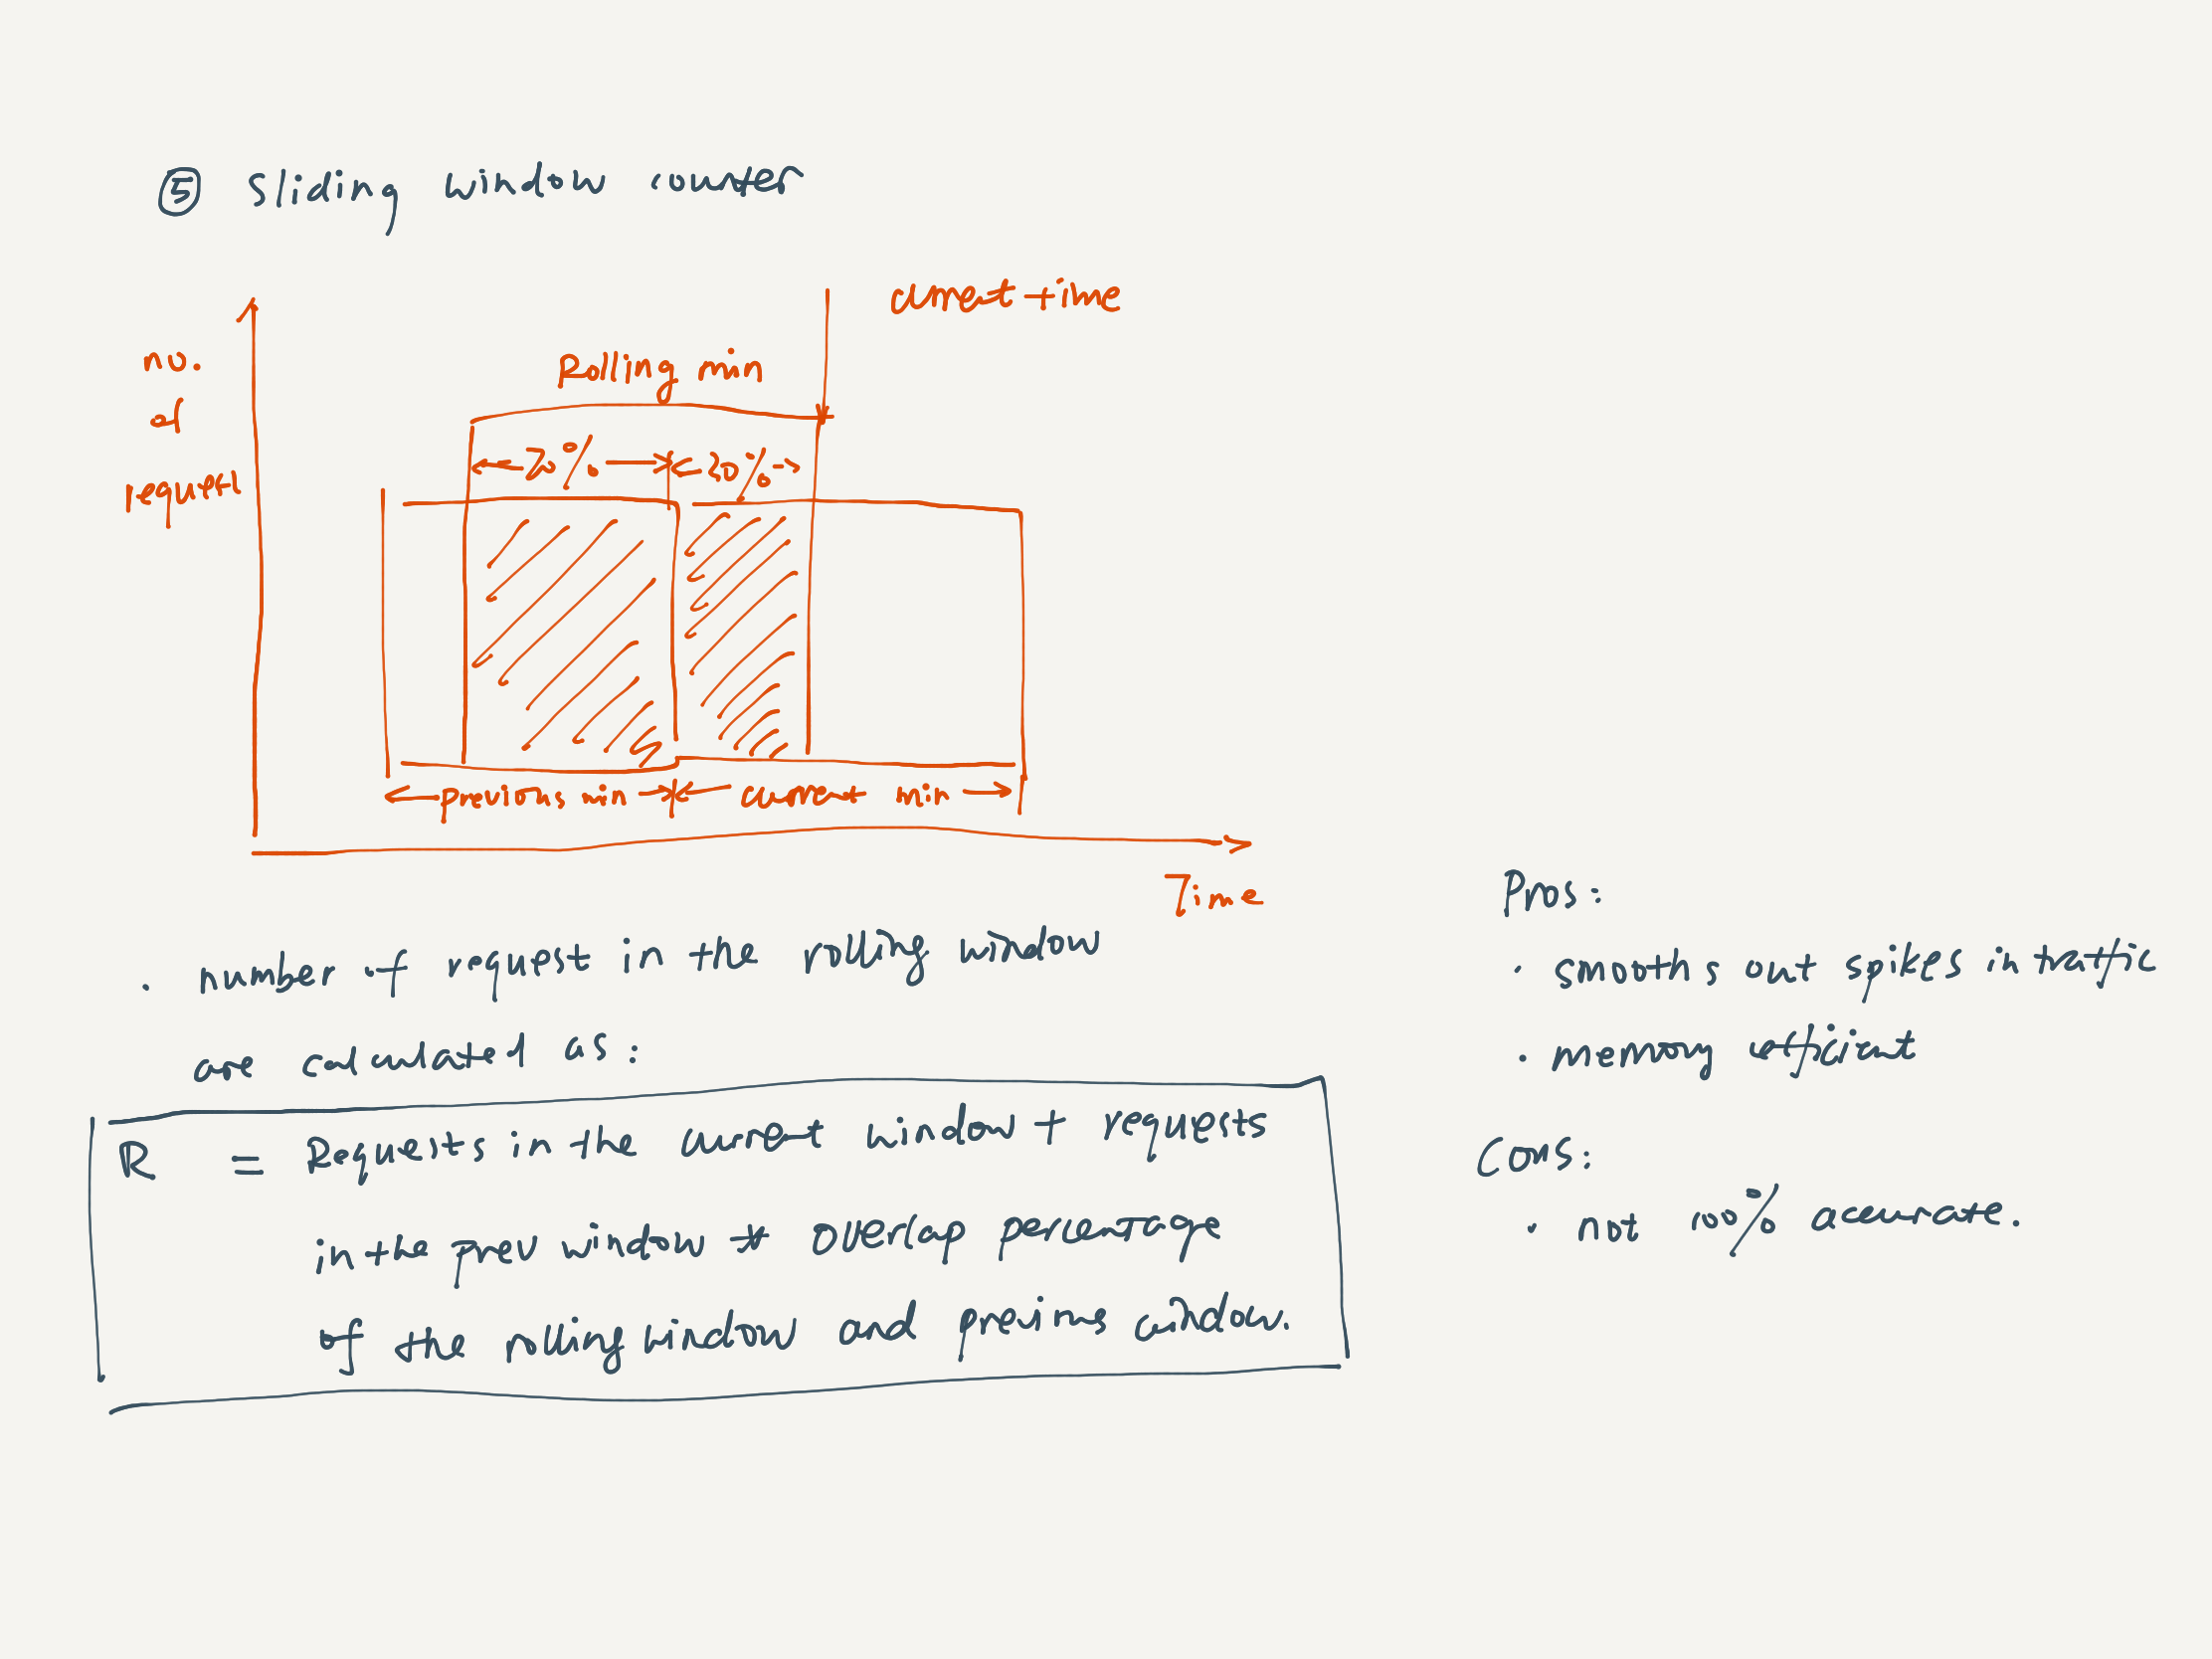 ⑤ Sliding window counter
current time
no.
of
request
Rolling min
70%
30%
previous min
current min
Time
. number of request in the rolling window
are calculated as:
R = Requests in the current window + requests
in the prev window * overlap percentage
of the rolling window and previous window.
Pros:
· smooths out spikes in traffic
· memory efficient
Cons:
· not 100% accurate.